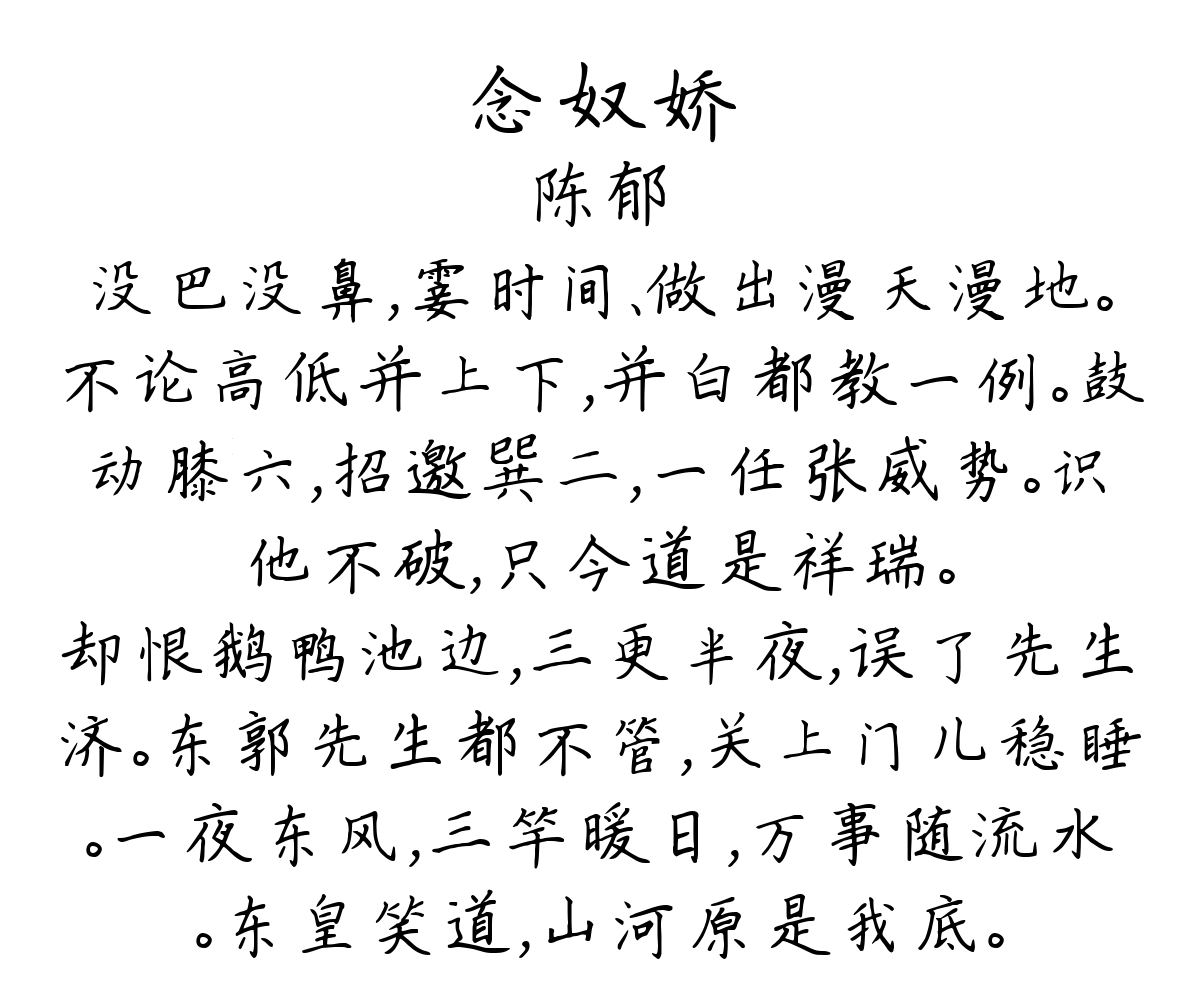 念奴娇
陈郁
没巴没鼻,霎时间、做出漫天漫地。
不论高低并上下,并白都教一例。鼓
动膝六,招邀巽二,一任张威势。识
他不破,只今道是祥瑞。
却恨鹅鸭池边,三更半夜,误了先生
济。东郭先生都不管,关上门儿稳睡
。一夜东风,三竿暖日,万事随流水
。东皇笑道,山河原是我底。